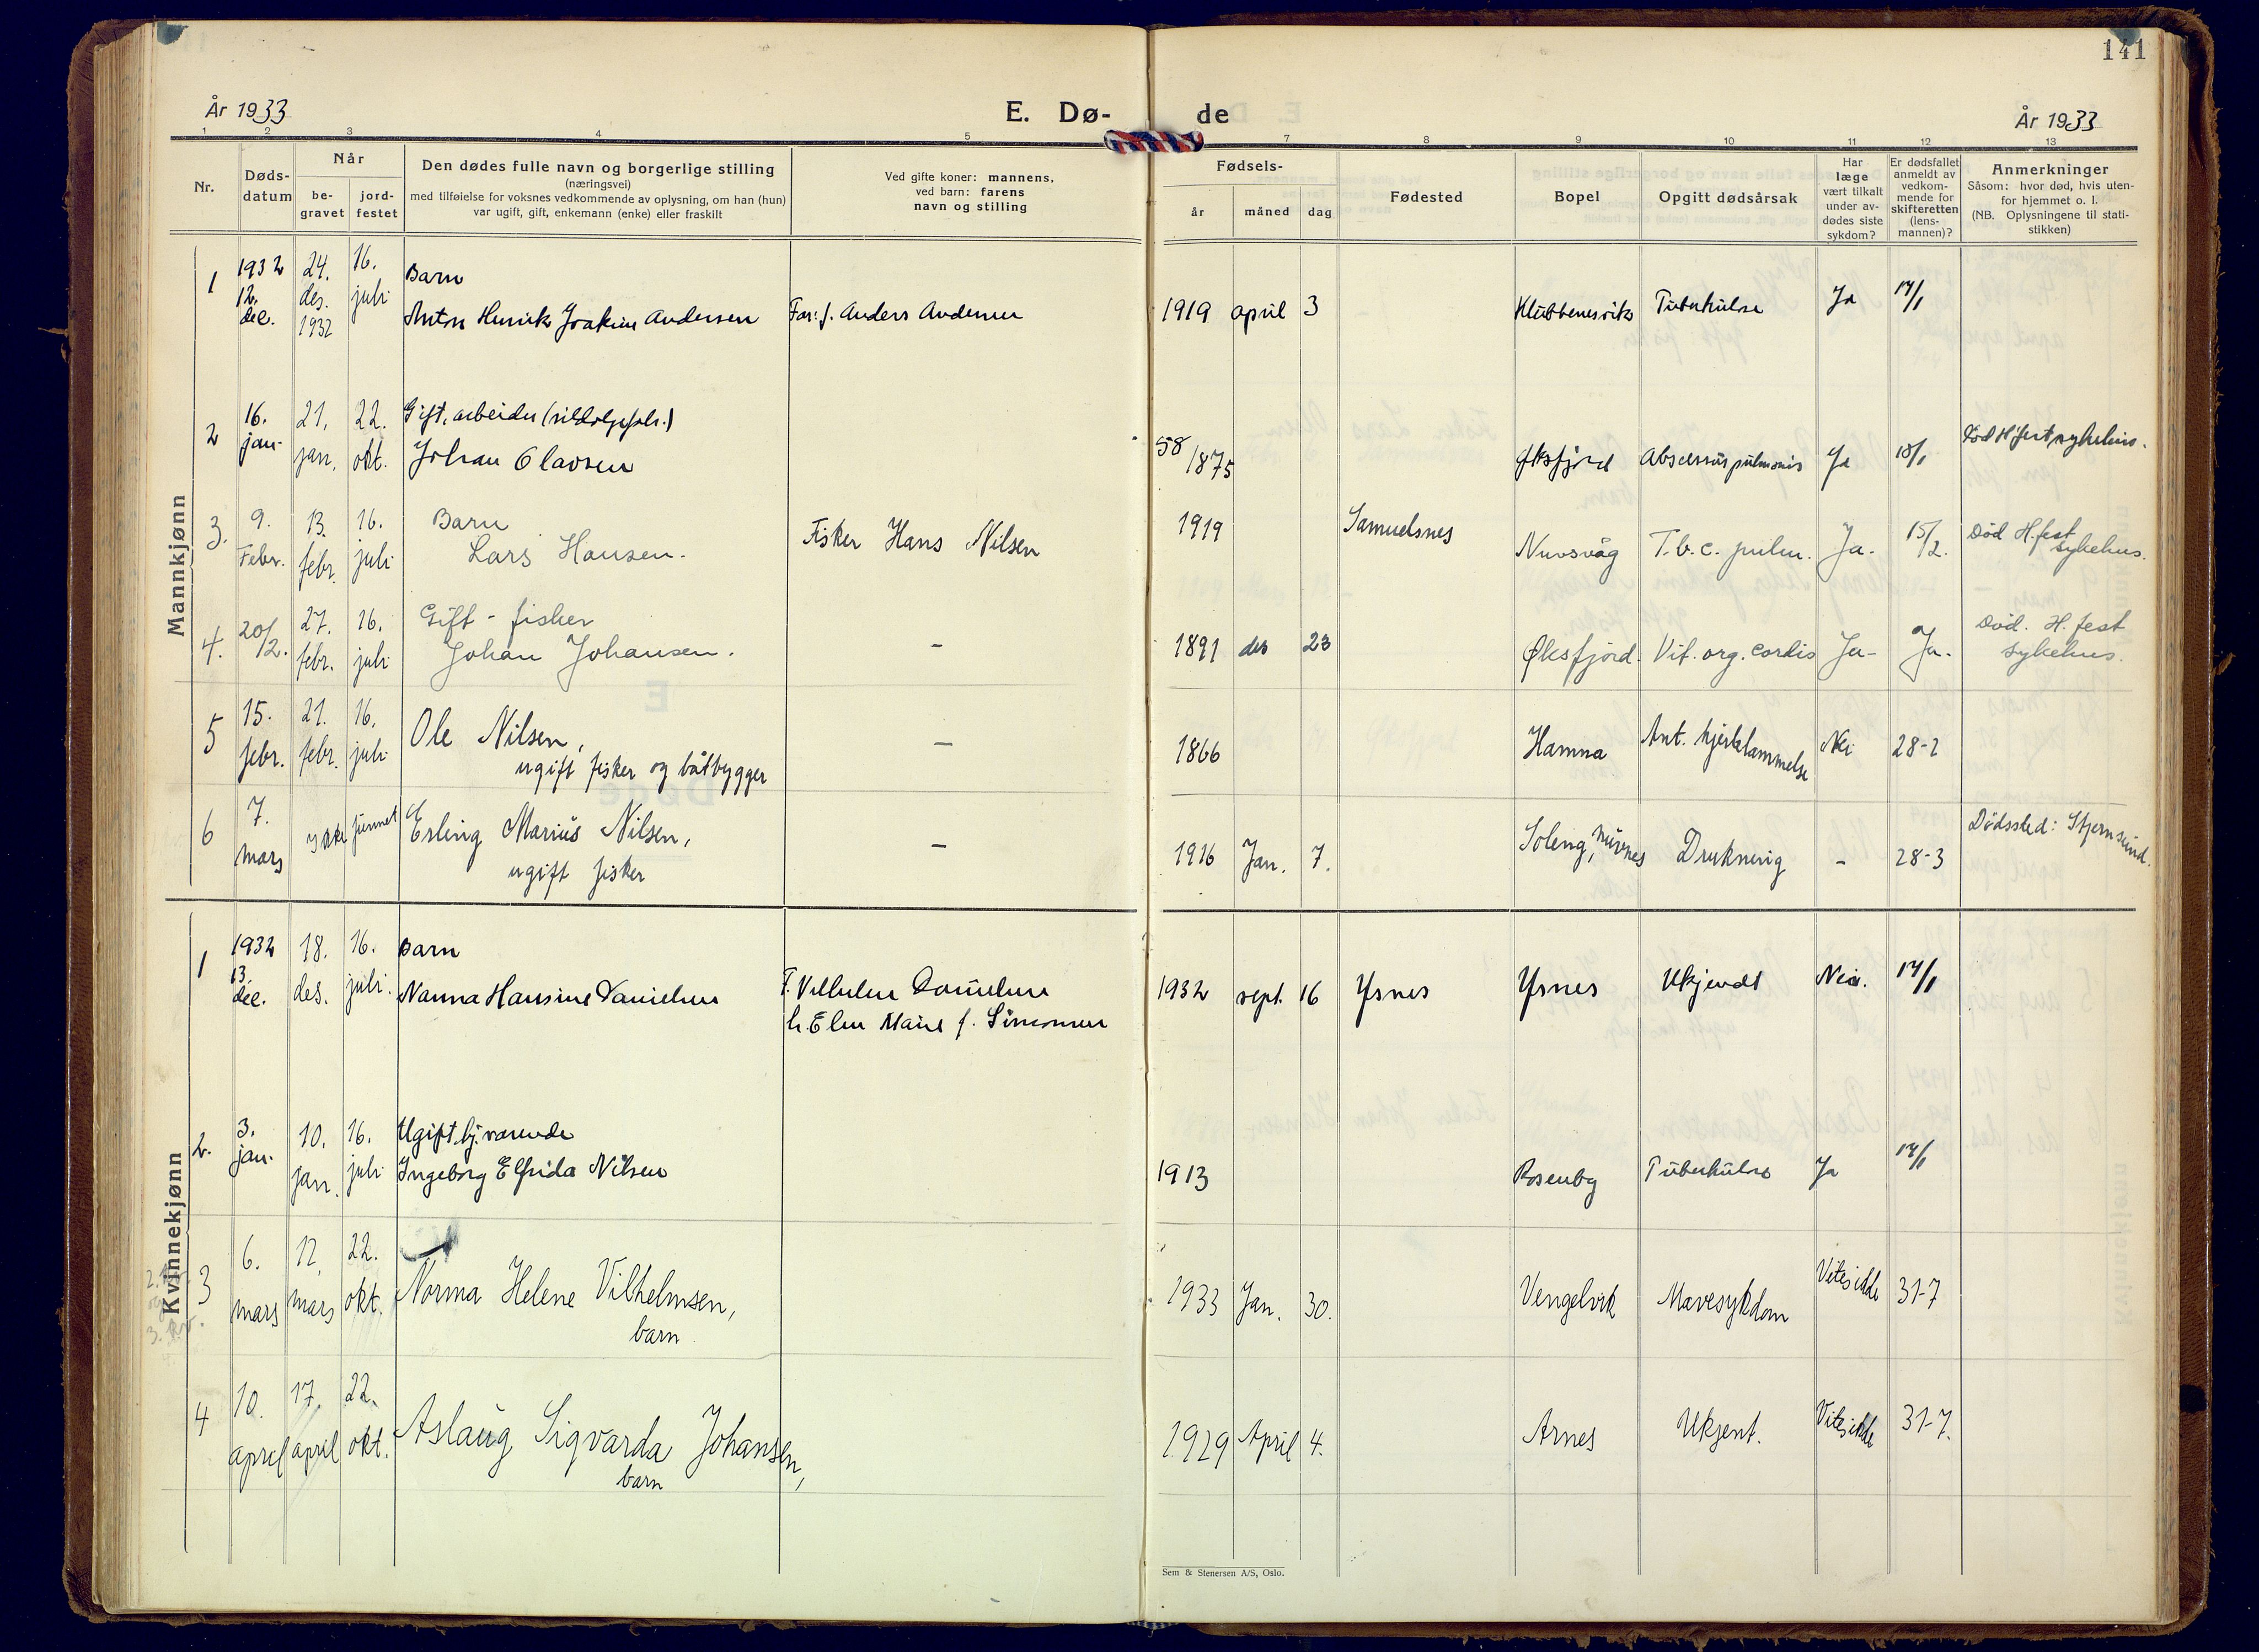 141
År 1933
E. Dø-
de
År 1933
1 2 3 4 5 7 8 9 10 11 12 13
Nr.
Døds-
datum
Når
be-
gravet
jord-
festet
Den dødes fulle navn og borgerlige stilling
(næringsvei)
med tilføielse for voksnes vedkommende av oplysning, om han (hun)
var ugift, gift, enkemann (enke) eller fraskilt
Ved gifte koner: mannens,
ved barn: farens
navn og stilling
Fødsels-
år
måned
dag
Fødested
Bopel
Opgitt dødsårsak
Har
læge
vært tilkalt
under av-
dødes siste
sykdom?
Er dødsfallet
anmeldt av
vedkom-
mende for
skifteretten
(lens-
mannen)?
Anmerkninger
Såsom: hvor død, hvis uten-
for hjemmet o. l.
(NB. Oplysningene til stati-
stikken)
Mannkjønn
1
1932
12.
dec.
24.
des.
1932
16.
juli
Barn
Anton Henrik Joakim Andersen
Far: f. Anders Andersen
1919 april 3
Klubbenesvik
Tuberkulose
Ja
14/1
2
16.
jan.
21.
jan.
22.
okt.
Gift, arbeider
Johan Olavsen
58
1875
Øksfjord
Abscessus pulmonis
Ja
18/1
Død H.fest sykehus.
3.
9.
Febr.
13.
febr.
16.
juli
Barn
Lars Hansen.
Fisker Hans Nilsen
1919
Samuelsnes
Nuvsvåg
T.b.c. pulm.
Ja.
15/2.
Død H.fest
sykehus.
4.
20/2.
27.
febr.
16.
juli
Gift - fisker
Johan Johansen.
-
1891 des 23
Øksfjord.
Vit. org. cordis
Ja-
Ja.
Død. H.fest
sykehus.
5
15.
febr.
21.
febr.
16.
juli
Ole Nilsen,
ugift fisker og båtbygger
-
1866
Hamna
Ant. hjertelammelse
Nei
28-2
6
7.
mars
ikke funnet
Erling Marius Nilsen,
ugift fisker
-
1916 Jan. 7.
Soleng, Nuvnes
Drukning
-
28-3
Dødssted: Stjernsund.
Kvinnekjønn
1
1932
13.
dec.
18.
des.
16.
juli.
Barn
Nanna Hansine Danielsen
F. Vilhelm Danielsen
h. Elen Marie f. Simonsen
1932 sept. 16
Ysnes
Ysnes
Ukjendt
Nei.
14/1
2.
3.
jan.
10.
jan.
16.
juli
Ugift hj. værende
Ingeborg Elfrida Nilsen
1913
Rosenby
Tuberkulose
Ja
14/1
3
6.
mars
12.
mars
22.
okt.
Norma Helene Vilhelmsen,
barn
1933 Jan. 30.
Vengelvik
Mavesykdom
Vites ikke
31-7
4
10.
april
17.
april
22.
okt.
Aslaug Sigvarda Johansen,
barn
1929 April 4.
Arnes
Ukjent.
Vites ikke
31-7.
Sem & Stenersen A/S, Oslo.